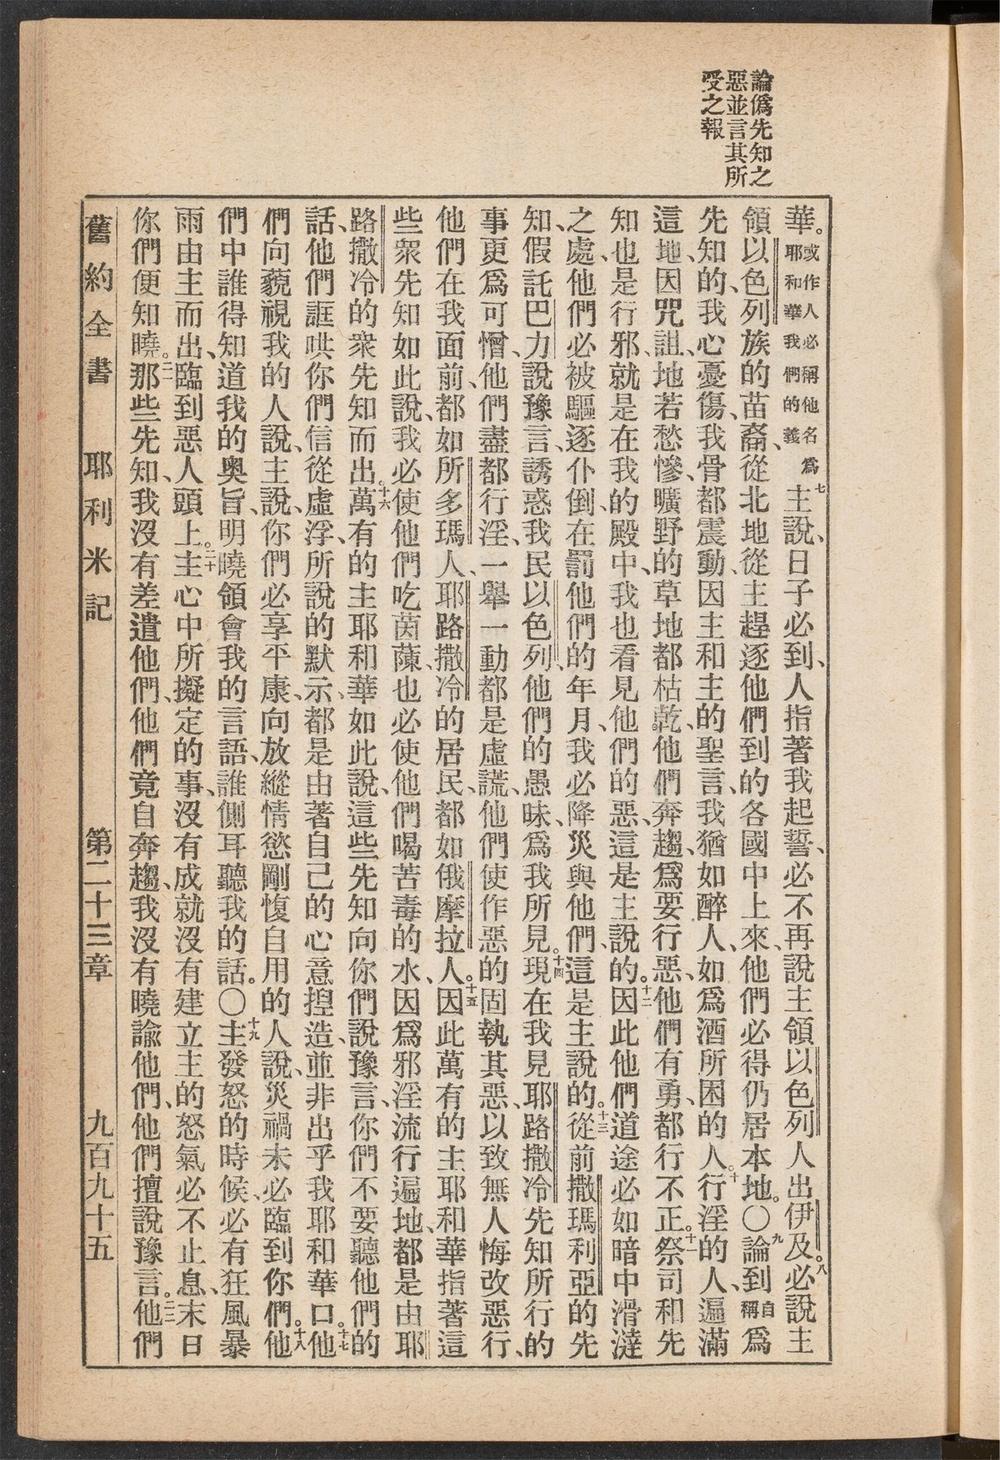 論僞先知之
惡並言其所
受之報
華。或作人必稱他名爲耶和華我們的義七主說、日子必到、人指著我起誓、必不再說主領以色列人出伊及。八必說主
領以色列族的苗裔、從北地從主趕逐他們到的各國中上來、他們必得仍居本地。〇九論到自稱爲
先知的、我心憂傷、我骨都震動、因主和主的聖言、我猶如醉人、如爲酒所困的人。十行淫的人、遍滿
這地、因咒詛、地若愁慘、曠野的草地都枯乾、他們奔趨、爲要行惡、他們有勇、都行不正。十一祭司和先
知也是行邪、就是在我的殿中、我也看見他們的惡、這是主說的。十二因此他們道途必如暗中滑澾
之處、他們必被驅逐仆倒、在罰他們的年月、我必降災與他們、這是主說的。十三從前撒瑪利亞的先
知、假託巴力說豫言、誘惑我民以色列、他們的愚昧、爲我所見。十四現在我見耶路撒冷先知所行的
事、更爲可憎、他們盡都行淫、一舉一動都是虛謊、他們使作惡的固執其惡、以致無人悔改惡行、
他們在我面前、都如所多瑪人、耶路撒冷的居民、都如俄摩拉人。十五因此萬有的主耶和華指著這
些衆先知如此說、我必使他們吃茵蔯、也必使他們喝苦毒的水、因爲邪淫流行遍地、都是由耶
路撒冷的衆先知而出。十六萬有的主耶和華如此說、這些先知向你們說豫言、你們不要聽他們的
話、他們誆哄你們信從虛浮、所說的默示、都是由著自己的心意揑造、並非出乎我耶和華口。十七他
們向藐視我的人說、主說、你們必享平康、向放縱情慾剛愎自用的人說、災禍未必臨到你們。十八他
們中誰得知道我的奧旨、明曉領會我的言語、誰側耳聽我的話。〇十九主發怒的時候、必有狂風暴
雨由主而出、臨到惡人頭上。二十主心中所擬定的事、沒有成就沒有建立、主的怒氣必不止息、末日
你們便知曉。二一那些先知、我沒有差遣他們、他們竟自奔趨、我沒有曉諭他們、他們擅說豫言。二二他們
舊約全書 耶利米記 第二十三章 九百九十五